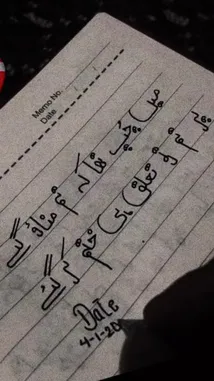 Memo No.
Date
میں چُپ تھا کہ تم مناؤ گے
تم تو تعلق ہی ختم کر گئے
Date
4-1-20